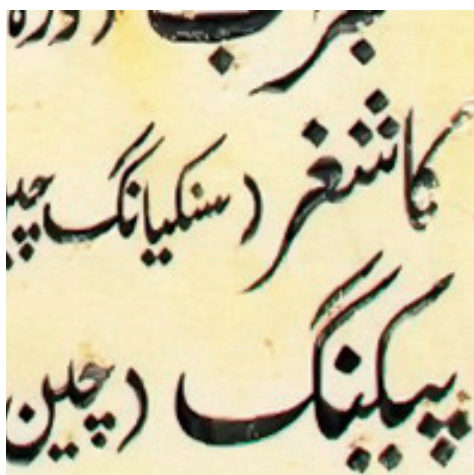 کاشغر (سنکیانگ چین
پیکینگ (چین